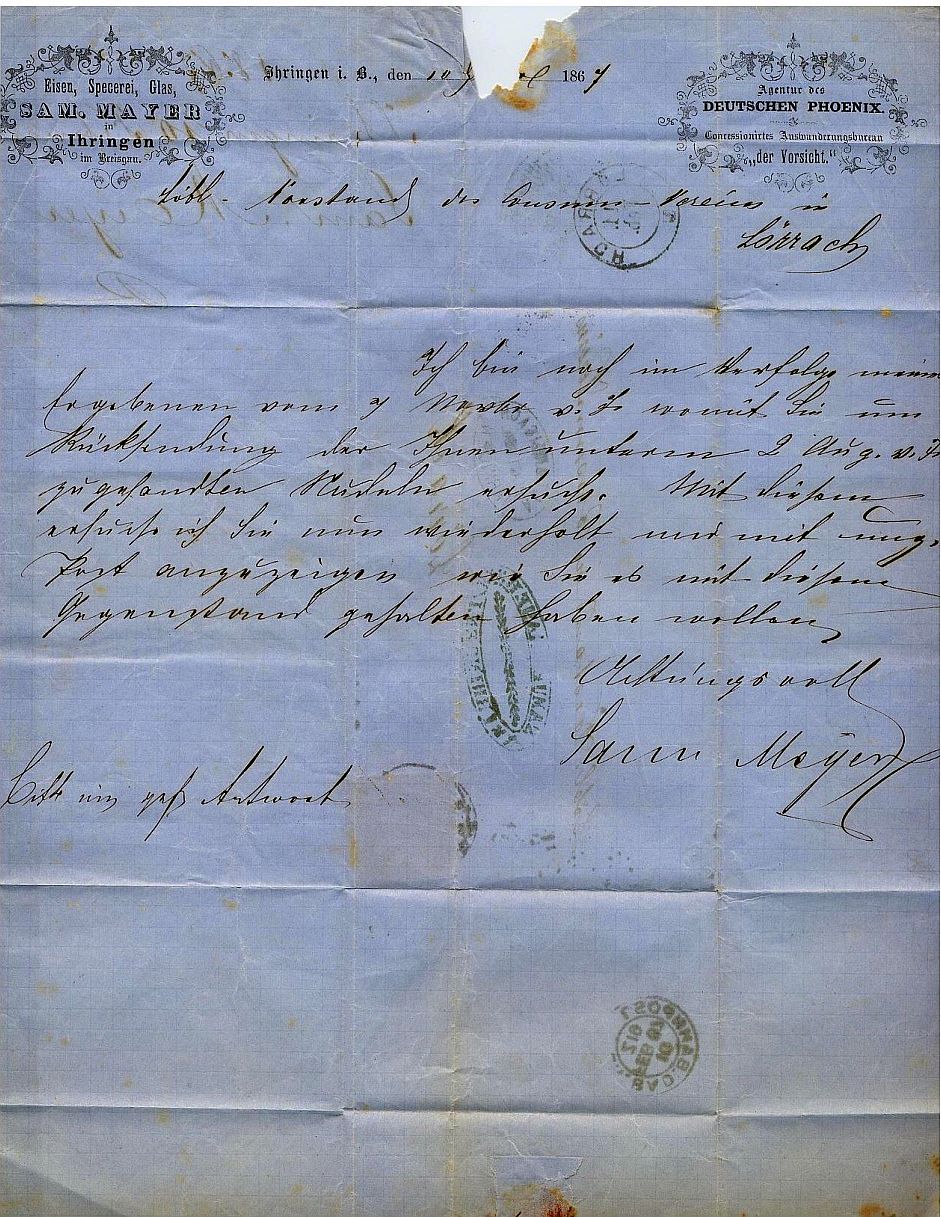 Eisen, Specerei, Glas,
SAM. MAYER
in
Ihringen
im Breisgau.
Ihringen i. B., den 10 186 7
Agentur des
DEUTSCHEN PHOENIX.
Concessionirtes Auswanderungsbureau
„der Vorsicht.“
Löbl. Vorstand des Consum-Vereins in
Lörrach
Ich bin noch im Verfolge meines
Ergebenen vom 7 Novbr v. Js womit Sie um
Rücksendung der Ihnen unterm 2 Aug. v. Js
zugesandten Nudeln ersuche. Mit diesem
ersuche ich Sie nun wiederholt mir mit umg.
Post anzuzeigen wie Sie es mit diesem
Gegenstand gehalten haben wollen
Achtungsvoll
Sam Mayer
Bitte um gefl Antwort